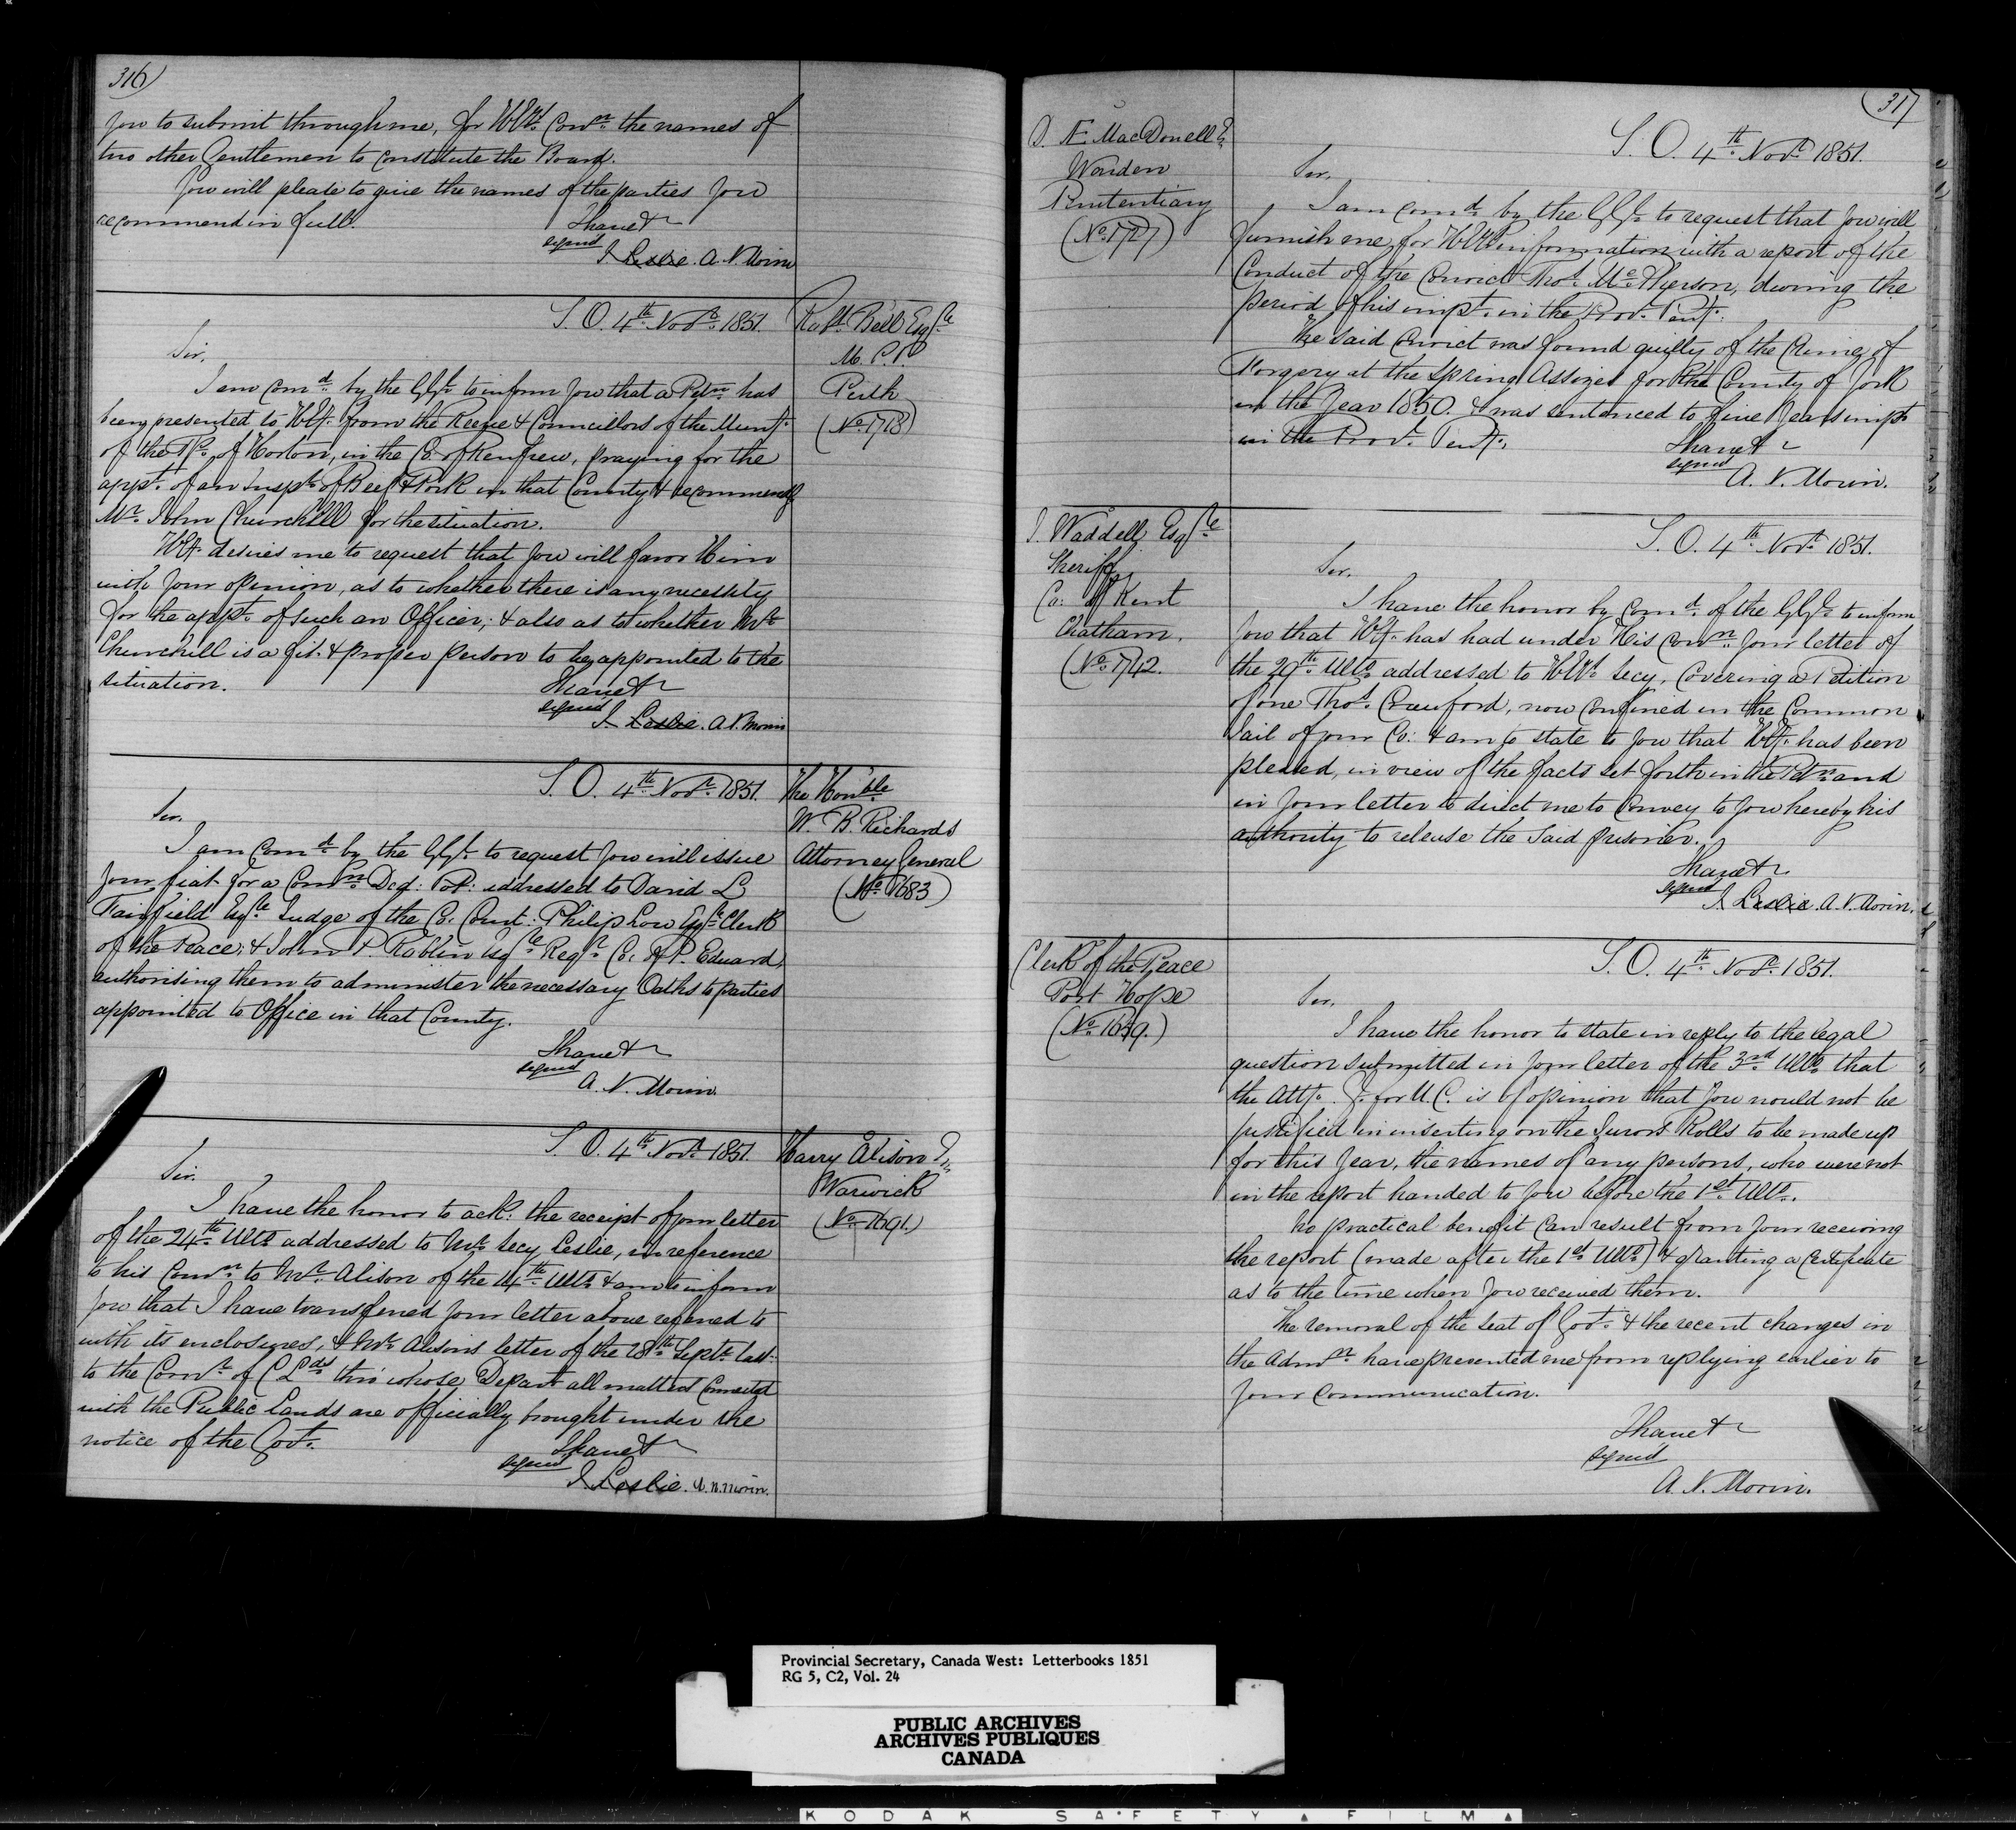 316)
you to submit through me, for H.E's. Conn. the names of
two other Gentlemen to constitute the Board.
You will please to give the names of the parties you
recommend in full.
I have &c
signed
J. Leslie. A. N. Morin
S. O. 4th Novr. 1851.
Robt. Bell Esqre
M. P. P.
Perth
(No. 1718)
Sir,
I am comd. by the G. G. to inform you that a Petn. has
been presented to H. E. from the Reeve & Councillors of the Muny.
of the Tp. of Horton, in the Co. of Renfrew, praying for the
appt. of an Inspr. of Beef & Pork in that County & recommendg
Mr. John Churchill for the situation.
H. E. desires me to request that you will favor Him
with your opinion, as to whether there is any necessity
for the appt. of such an Officer, & also as to whether Mr.
Churchill is a fit & proper person to be appointed to the
situation.
I have &c
signed
J. Leslie. A. N. Morin
S. O. 4th Novr. 1851.
The Honble
W. B. Richards
Attorney General
(No. 1683)
Sir,
I am comd. by the G. G. to request you will issue
your fiat for a Comn. Ded: Pot: addressed to David L
Fairfield Esqre. Judge of the Co. Court: Philip Low Esqre. Clerk
of the Peace; & John P. Roblin Esqre. Regr. Co. of P. Edward,
authorising them to administer the necessary Oaths to parties
appointed to Office in that County.
I have &c
signed
A. N. Morin.
S. O. 4th Novr. 1851.
Harry Alison Er.
Warwick
(No. 1691.)
Sir.
I have the honor to ack: the receipt of your letter
of the 24th Ulto. addressed to Mr. Secy Leslie, in reference
to his Comn. to Mr. Alison of the 14th Ulto. & am to inform
you that I have transferred your letter above referred to
with its enclosures, & Mr. Alison's letter of the 28th Septr. last.
to the Comr. of C Lds thro' whose Depart all matters connected
with the Public Lands are officially brought under the
notice of the Govt.
I have &c
signed
J. Leslie. A. N. Morin.
(317
D. Æ MacDonell Er.
Warden
Penitentiary
(No. 1727)
S. O. 4th Novr. 1851.
Sir,
I am comd. by the G. G. to request that you will
furnish me, for H. E's information with a report of the
Conduct of the Convict Thos. McPherson, during the
period of his impt. in the Provl. Peny.
The said Convict was found guilty of the Crime of
Forgery at the Spring Assizes for the County of York
in the Year 1850. & was sentenced to five Years impt.
in the Provl. Peny.
I have &c
signed
A. N. Morin.
J. Waddell Esqre
Sheriff
Co: of Kent
Chatham.
(No. 1742.
S. O. 4th Novr. 1851.
Sir,
I have the honor by Comd. of the G. G. to inform
you that H. E. has had under His Conn. your letter of
the 29th Ulto. addressed to H. E's. Secy, Covering a Petition
of one Thos. Crawford, now confined in the Common
Jail of your Co: & am to state to you that H. E. has been
pleased, in view of the facts set forth in the Petn. and
in your letter to direct me to convey to you hereby his
authority to release the said prisoner.
I have &c
signed
J. Leslie. A. N. Morin.
Clerk of the Peace
Port Hope
(No. 1649.)
S. O. 4th Novr. 1851.
Sir,
I have the honor to state in reply to the legal
question submitted in your letter of the 3rd Ulto. that
the Atty. G. for U. C. is of opinion that you would not be
justified in inserting on the Jurors Rolls to be made up
for this Year, the names of any persons, who were not
in the report handed to you before the 1st. Ulto.
No practical benefit can result from your receiving
the report (made after the 1st Ulto.) & granting a Certificate
as to the time when you received them.
The removal of the Seat of Govt. & the recent changes in
the Admn. have prevented me from replying earlier to
your communication.
I have &c
signed
A. N. Morin.
Provincial Secretary, Canada West: Letterbooks 1851
RG 5, C2, Vol. 24
PUBLIC ARCHIVES
ARCHIVES PUBLIQUES
CANADA
KODAK SAFETY FILM